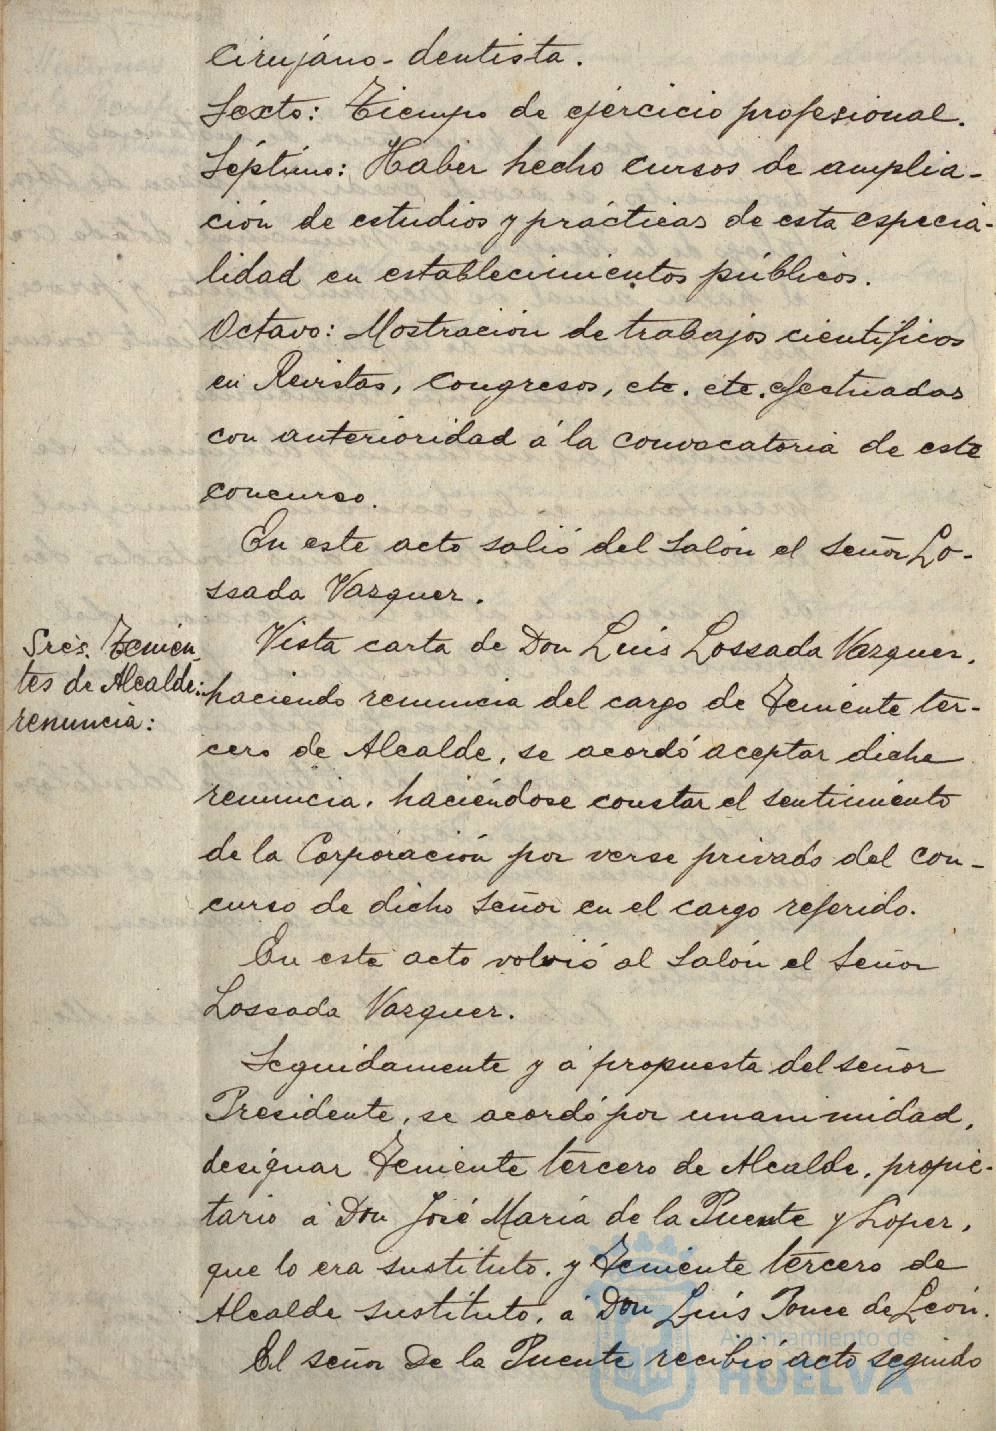 Cirujano-dentista.
Sexto: Tiempo de ejercicio profesional.
Séptimo: Haber hecho cursos de amplia-
ción de estudios y prácticas de esta especia-
lidad en establecimientos públicos.
Octavo: Mostración de trabajos científicos
en Revistas, Congresos, etc. etc. efectuadas
con anterioridad á la convocatoria de este
concurso.
En este acto salió del Salón el Señor Lo-
ssada Vazquez.
Sres. Tenien-
tes de Alcalde:
renuncia:
Vista carta de Don Luis Lossada Vazquez,
haciendo renuncia del cargo de Teniente ter-
cero de Alcalde, se acordó aceptar dicha
renuncia, haciéndose constar el sentimiento
de la Corporación por verse privado del con-
curso de dicho Señor en el cargo referido.
En este acto volvió al Salón el Señor
Lossada Vazquez.
Seguidamente y á propuesta del señor
Presidente, se acordó por unanimidad,
designar Teniente tercero de Alcalde, propie-
tario á Don José María de la Puente y Lopez,
que lo era sustituto, y Teniente tercero de
Alcalde sustituto, á Don Luis Ponce de León.
El señor De la Puente recibió acto seguido
Ayuntamiento de
HUELVA